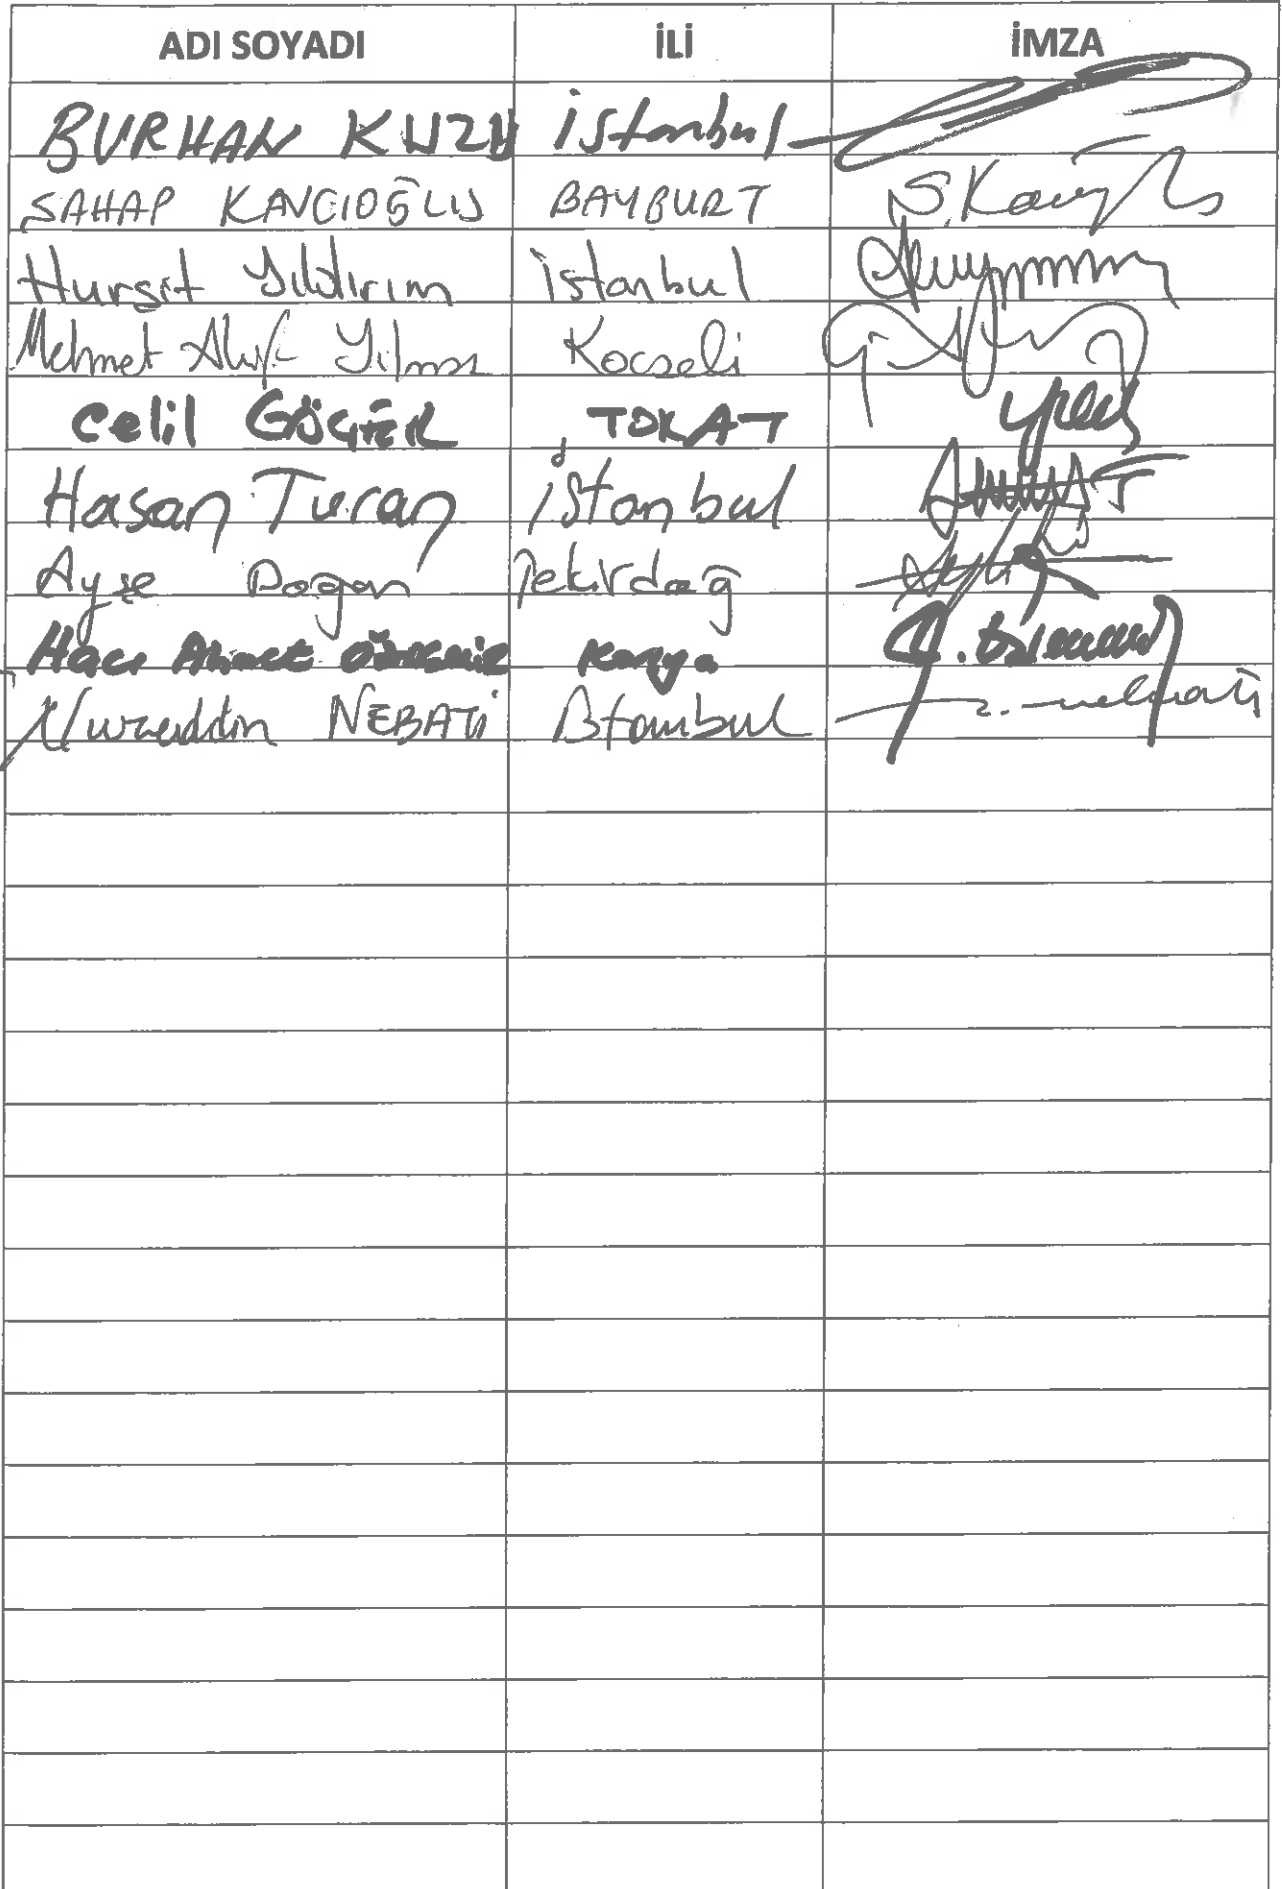 ADI SOYADI İLİ İMZA
BURHAN KUZU İstanbul
ŞAHAP KAVCIOĞLU BAYBURT S.Kavıoğlu
Hurşit Yıldırım İstanbul
Mehmet Akif Yılmaz Kocaeli
Celil GÖÇER TOKAT
Hasan Turan İstanbul
Ayşe Doğan Tekirdağ
Hacı Ahmet ÖZDEMİR Konya
Nureddin NEBATİ İstanbul